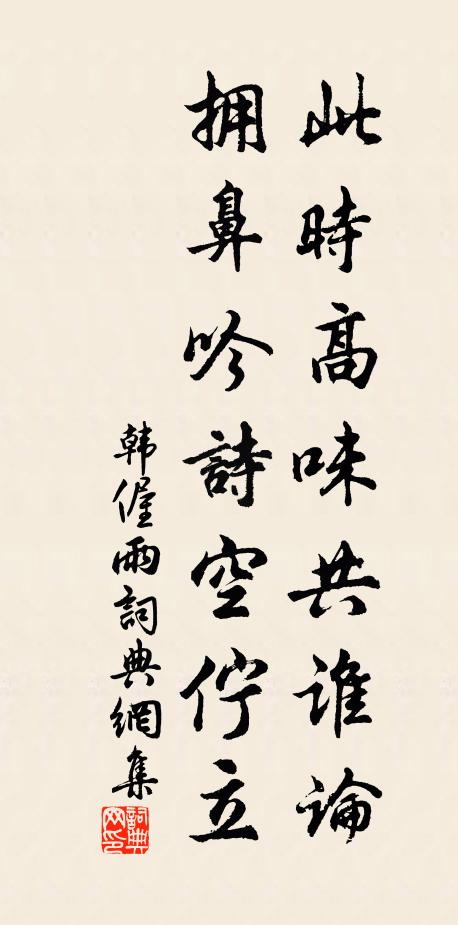 此時高味共誰論
拥鼻吟詩空佇立
韩偓雨詞典網集
詞典网印